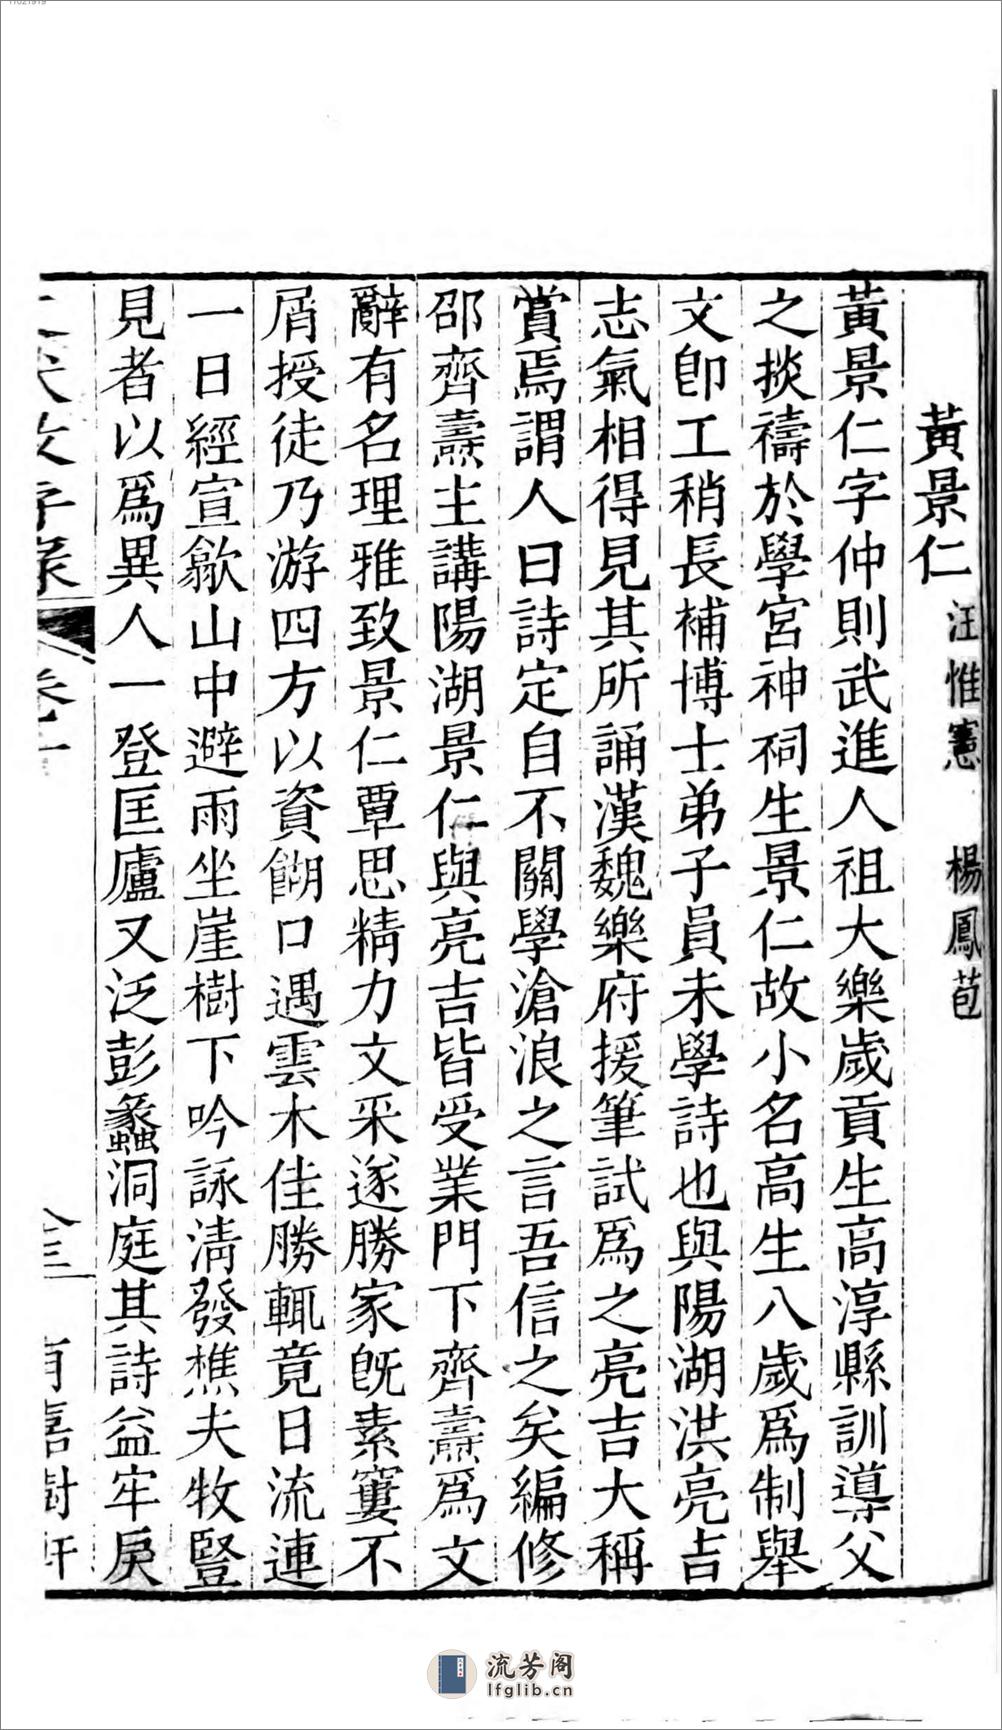 11021919
黃景仁 汪惟憲 楊鳳苞
黃景仁字仲則武進人祖大樂歲貢生高淳縣訓導父
之掞禱於學宮神祠生景仁故小名高生八歲爲制舉
文卽工稍長補博士弟子員未學詩也與陽湖洪亮吉
志氣相得見其所誦漢魏樂府援筆試爲之亮吉大稱
賞焉謂人曰詩定自不關學滄浪之言吾信之矣編修
邵齊燾主講陽湖景仁與亮吉皆受業門下齊燾爲文
辭有名理雅致景仁覃思精力文采遂勝家旣素窶不
屑授徒乃游四方以資餬口遇雲木佳勝輒竟日流連
一日經宣歙山中避雨坐崖樹下吟詠淸發樵夫牧豎
見者以爲異人一登匡廬又泛彭蠡洞庭其詩益牢戾
文獻徵存錄 卷十 有嘉樹軒
流芳阁
lfglib.cn